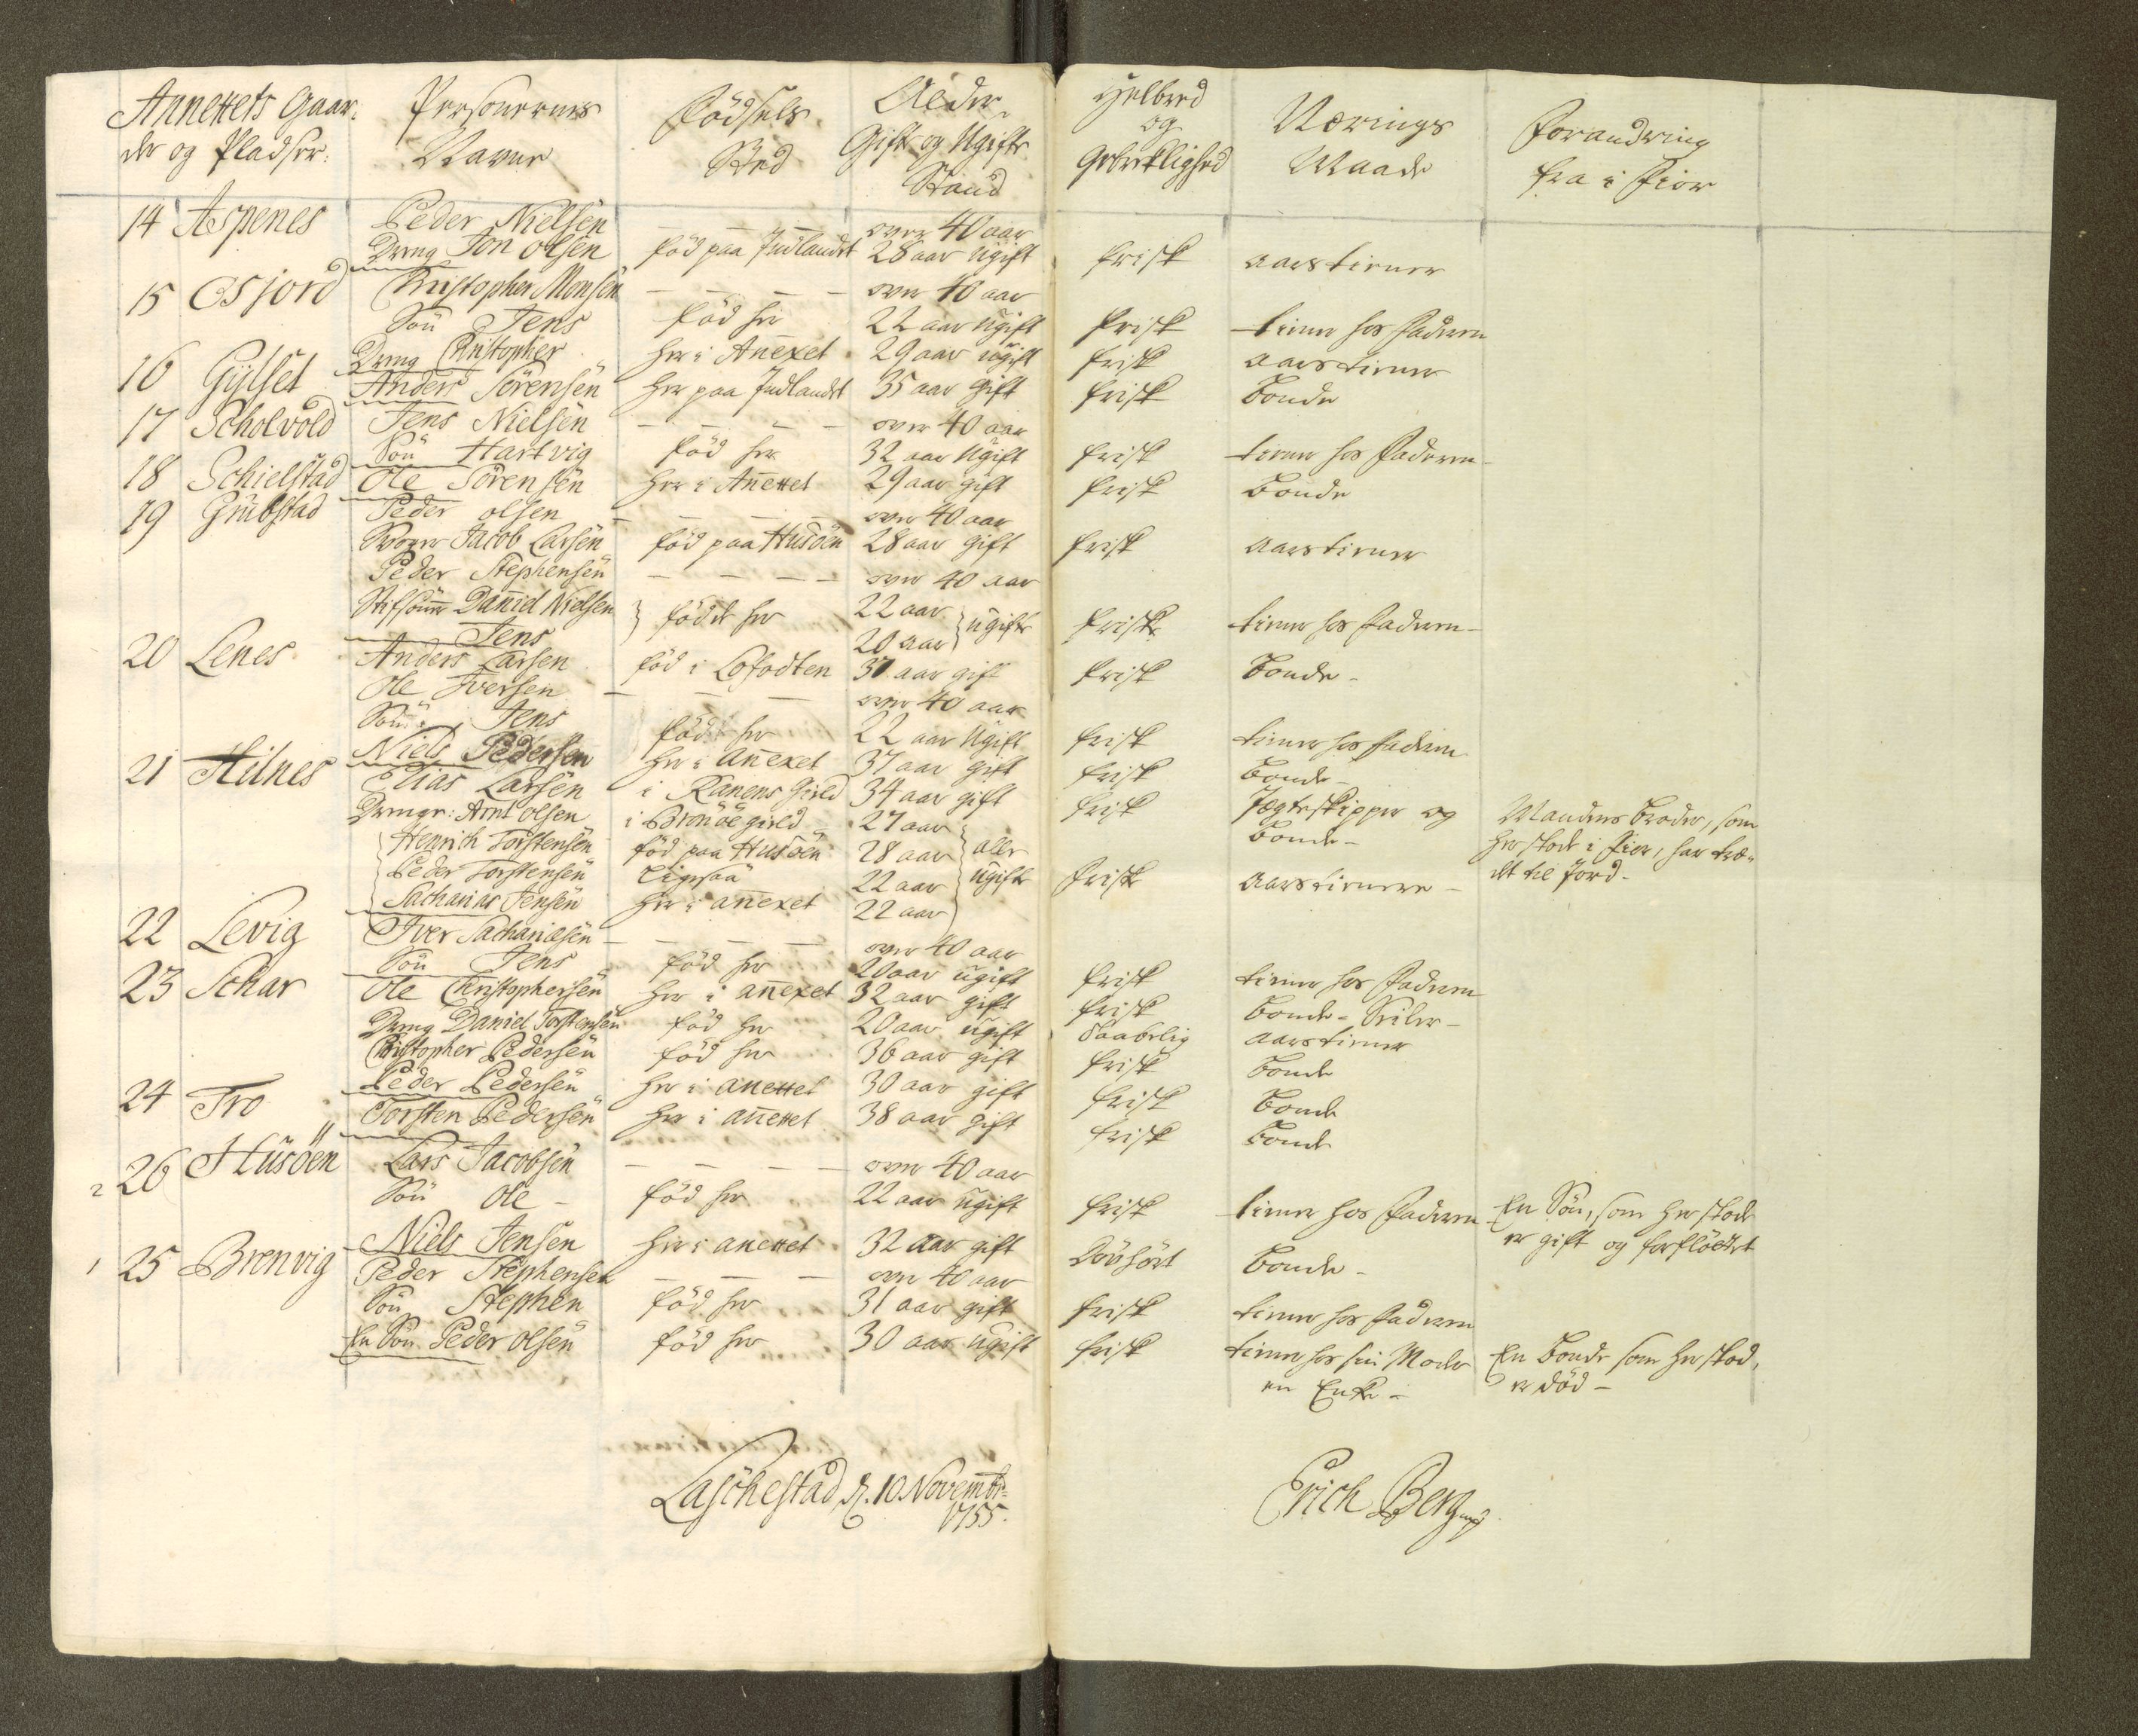 Annexets Gaar- Personernes Fødsels Alder Helbred Nærings Forandring
der og Pladser. Navne Sted Gift og Ugifte og Maade fra i Fior
Stand Gebreklighed
14 Aspenes Peder Nielsen — — — over 40 aar
Dreng Jon Olsen fød paa Indlandet 28 aar ugift frisk aarstiener
15 Osjord Christopher Monsen — — — — over 40 aar
Søn Jens fød her 22 aar ugift frisk tiener hos Faderen
Dreng Christopher her i Anexet 29 aar ugift frisk aarstiener
16 Gylset Anders Sörensen her paa Indlandet 35 aar gift frisk Bonde
17 Scholvold Jens Nielsen — — — — over 40 aar
Søn Hartvig fød her 32 aar ugift frisk tiener hos Faderen
18 Schielstad Ole Sörensen her i Anexet 29 aar gift frisk Bonde
19 Grubstad Peder Olsen — — — — over 40 aar
Jacob Larsen fød paa Husöen 28 aar gift frisk aarstiener
Peder Stephensen — — — — over 40 aar
Stifsønner Daniel Nielsen } fødde her 22 aar } ugifte friske tiener hos Faderen
Jens 20 aar
20 Lenes Anders Larsen fød i Lofodten 37 aar gift frisk Bonde
Ole Iversen — — — over 40 aar
Søn Jens fød her 22 aar ugift frisk tiener hos Faderen
Niels Pedersen her i Anexet 37 aar gift frisk Bonde
21 Hilnes Elias Larsen i Ranens Gield 34 aar gift frisk Jægteskipper og Mandens Broder, som
Drenge: Arnt Olsen i Brönöe gield 27 aar Bonde her stode i Fior, har træ-
Henrich Torstensen fød paa Husöen 28 aar } alle det til Jord
Peder Torstensen Ligesaa 22 aar ugifte friske aarstienere
Sacharias Jensen her i anexet 22 aar
22 Levig Iver Sachariesen — — — — over 40 aar
Søn Jens fød her 20 aar ugift frisk tiener hos Faderen
23 Schar Ole Christophersen her i anexet 32 aar gift frisk Bonde
Dreng Daniel Torstensen fød her 20 aar ugift aarstiener
Christopher Pedersen fød her 36 aar gift frisk Bonde
Peder Pedersen her i anexet 30 aar gift frisk Bonde
24 Tro Torsten Pedersen her i anexet 38 aar gift frisk Bonde
2 26 Husöen Lars Jacobsen — — — — over 40 aar
Søn Ole fød her 22 aar ugift frisk tiener hos Faderen En Søn, som her stode
er gift og forfløttet
Niels Jensen her i anexet 32 aar gift Bonde
1 25 Brenvig Peder Stephensen — — — over 40 aar
Søn Stephen fød her 31 aar gift frisk tiener hos Faderen
En Søn Peder Olsen fød her 30 aar ugift frisk tiener hos sin Moder En Bonde som her stod,
en Enke er død
Laschestad d. 10. Novembr:
1755.
Erich Berg